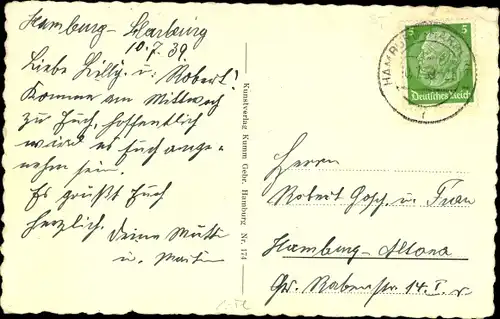 Hamburg-Harburg
10.7.39.
Liebe Lilly u. Robert!
Komme am Mittwoch
zu Euch, hoffentlich
wird es Euch ange=
nehm sein.
Es grüßt Euch
herzlich.
Deine Mutti
u. Martin
Kunstverlag Kumm Gebr. Hamburg Nr. 174
5 5
HAMB
Deutsches Reich
Herrn
Robert Gosch u. Frau
Hamburg-Altona
Gr. Rabenstr 14. I. r